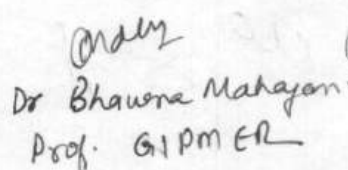 Dr Bhawna Mahajan
Prof. GIPMER